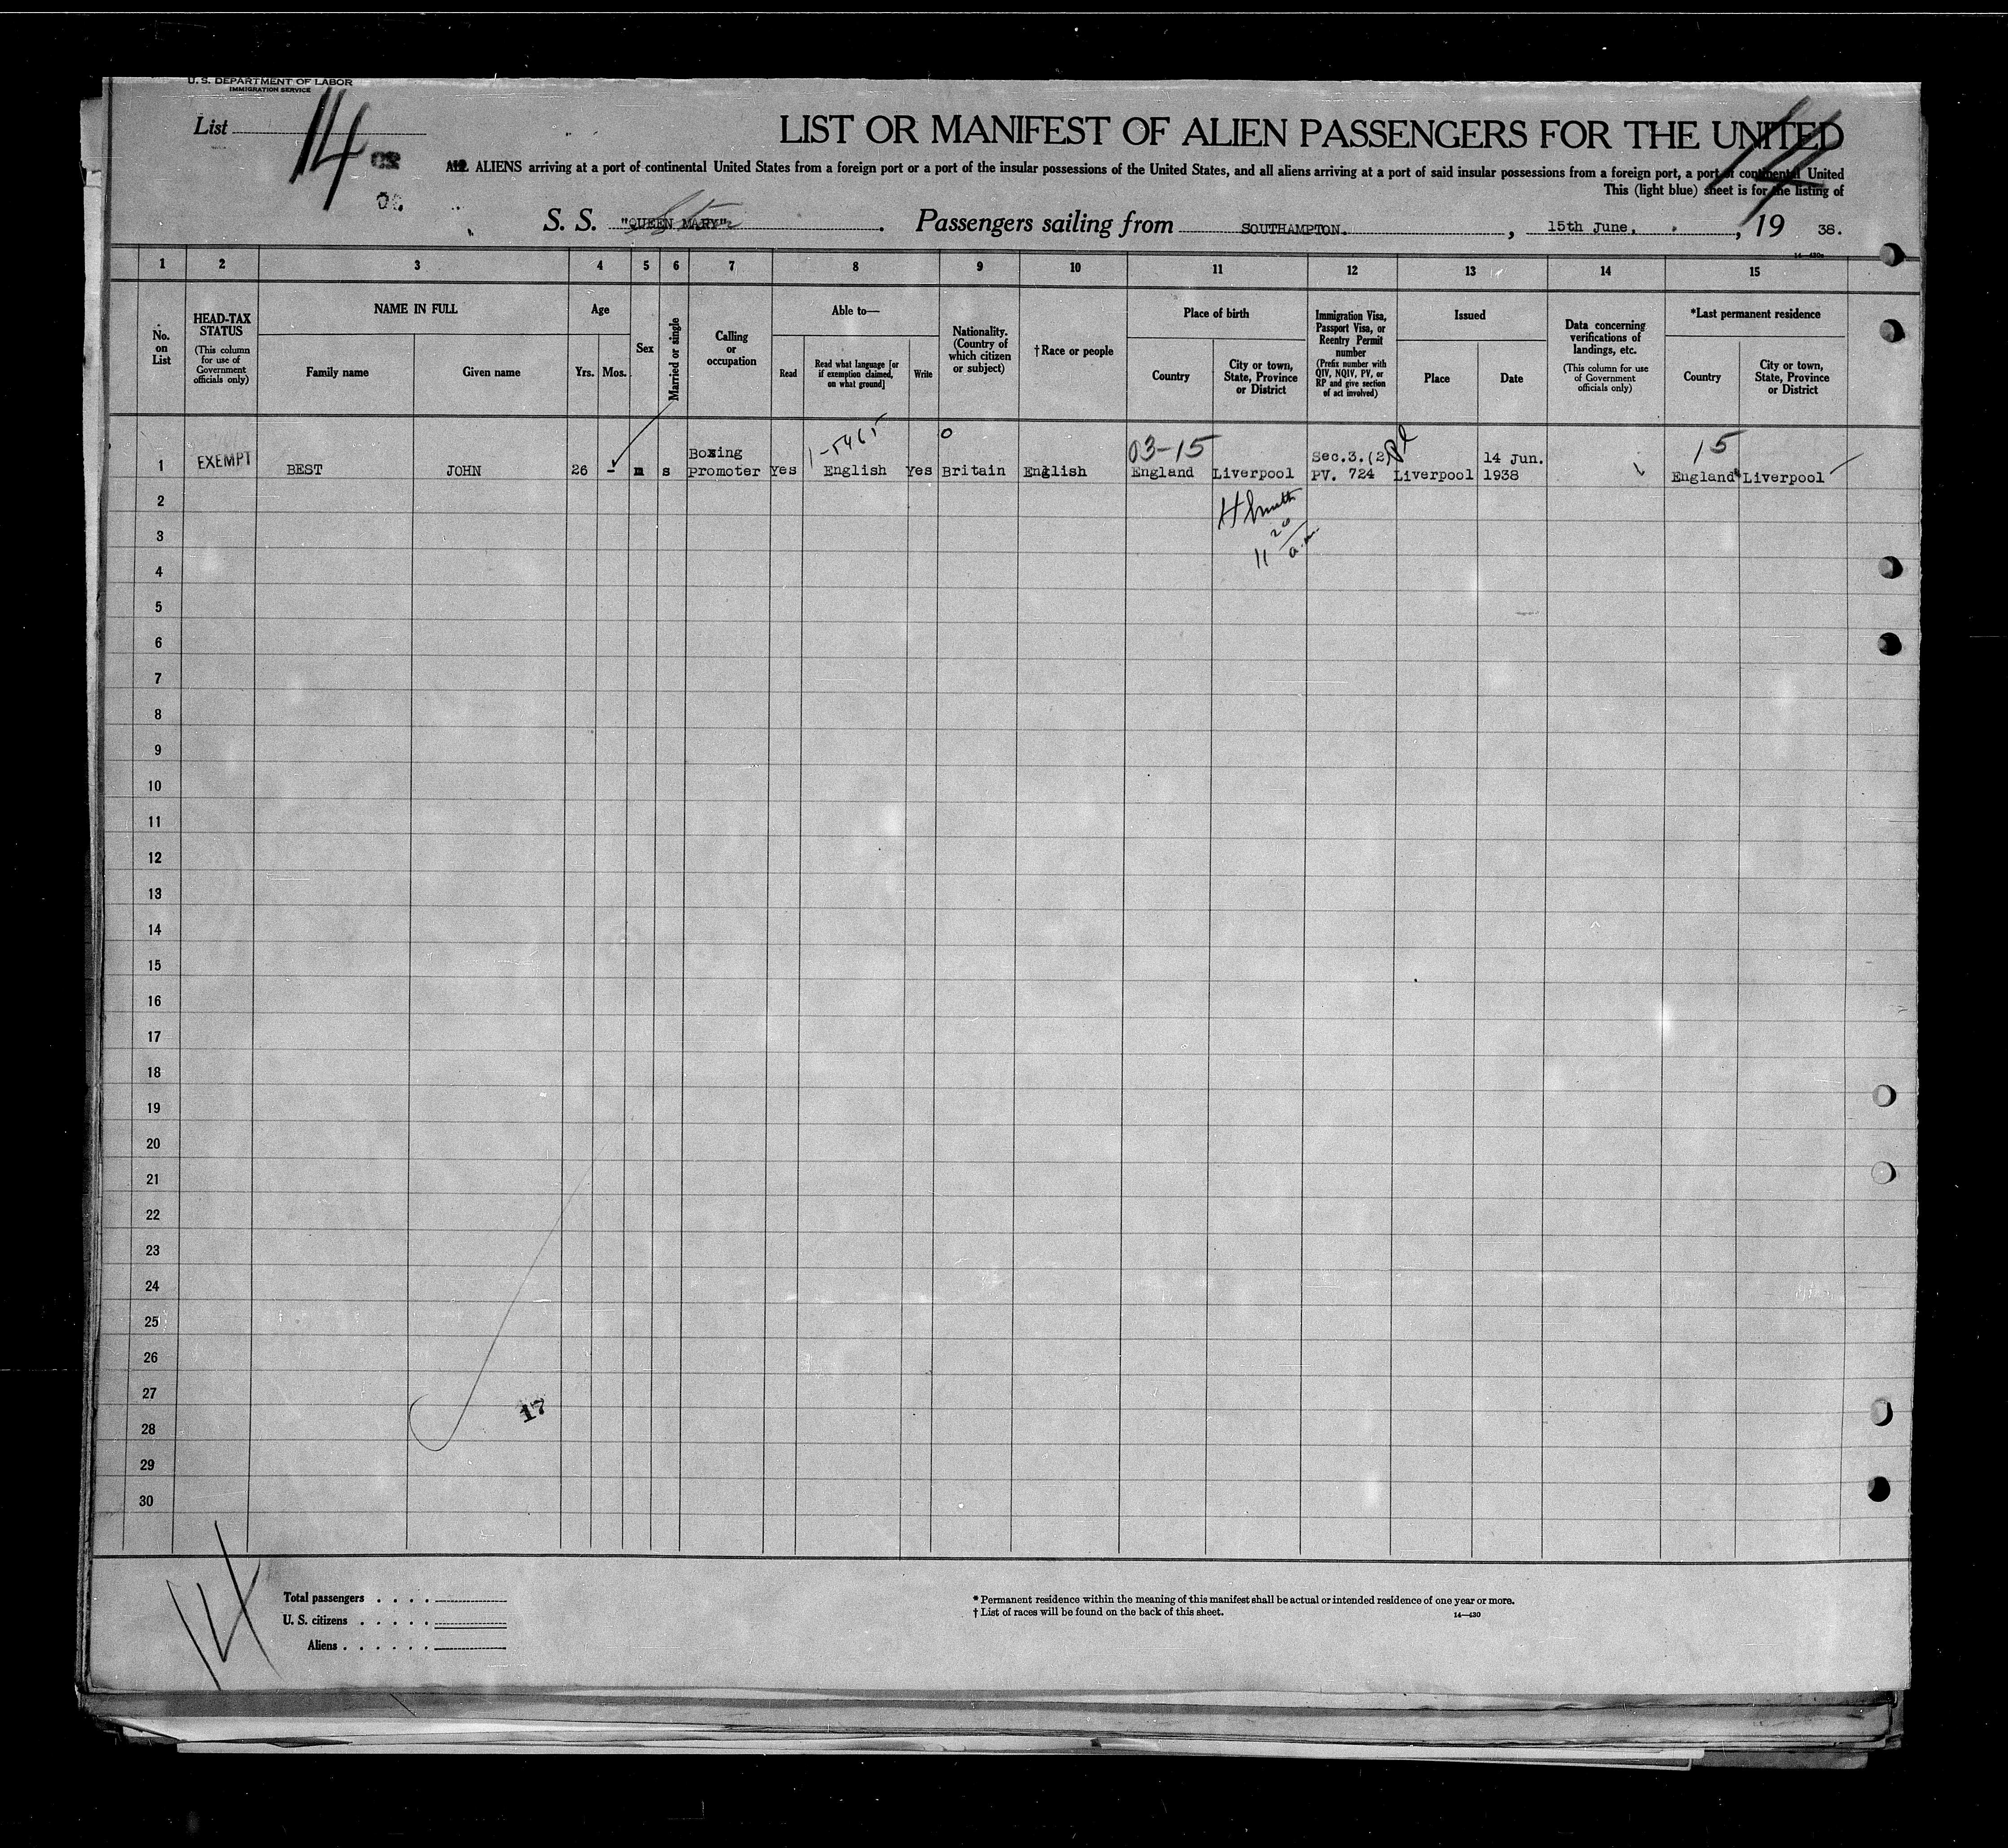 U. S. DEPARTMENT OF LABOR
IMMIGRATION SERVICE
List 14
LIST OR MANIFEST OF ALIEN PASSENGERS FOR THE UNITED
ALL ALIENS arriving at a port of continental United States from a foreign port or a port of the insular possessions of the United States, and all aliens arriving at a port of said insular possessions from a foreign port, a port of continental United
This (light blue) sheet is for the listing of
S. S. "QUEEN MARY" . Passengers sailing from SOUTHAMPTON. , 15th June, , 19 38.
14—430a
1 2 3 4 5 6 7 8 9 10 11 12 13 14 15
No. on List
HEAD-TAX STATUS
(This column for use of Government officials only)
NAME IN FULL
Family name
Given name
Age
Yrs.
Mos.
Sex
Married or single
Calling or occupation
Able to—
Read
Read what language [or if exemption claimed, on what ground]
Write
Nationality. (Country of which citizen or subject)
†Race or people
Place of birth
Country
City or town, State, Province or District
Immigration Visa, Passport Visa, or Reentry Permit number
(Prefix number with QIV, NQIV, PV, or RP and give section of act involved)
Issued
Place
Date
Data concerning verifications of landings, etc.
(This column for use of Government officials only)
*Last permanent residence
Country
City or town, State, Province or District
03-15
15
1 EXEMPT BEST JOHN 26 - m s Boxing promoter Yes English Yes Britain English England Liverpool Sec.3.(2) PV. 724 Liverpool 14 Jun. 1938 England Liverpool
2
3
11 20 a.m.
4
5
6
7
8
9
10
11
12
13
14
15
16
17
18
19
20
21
22
23
24
25
26
27
17
28
29
30
14
Total passengers . . . .
U. S. citizens . . . . .
Aliens . . . . . .
* Permanent residence within the meaning of this manifest shall be actual or intended residence of one year or more.
† List of races will be found on the back of this sheet.
14—430